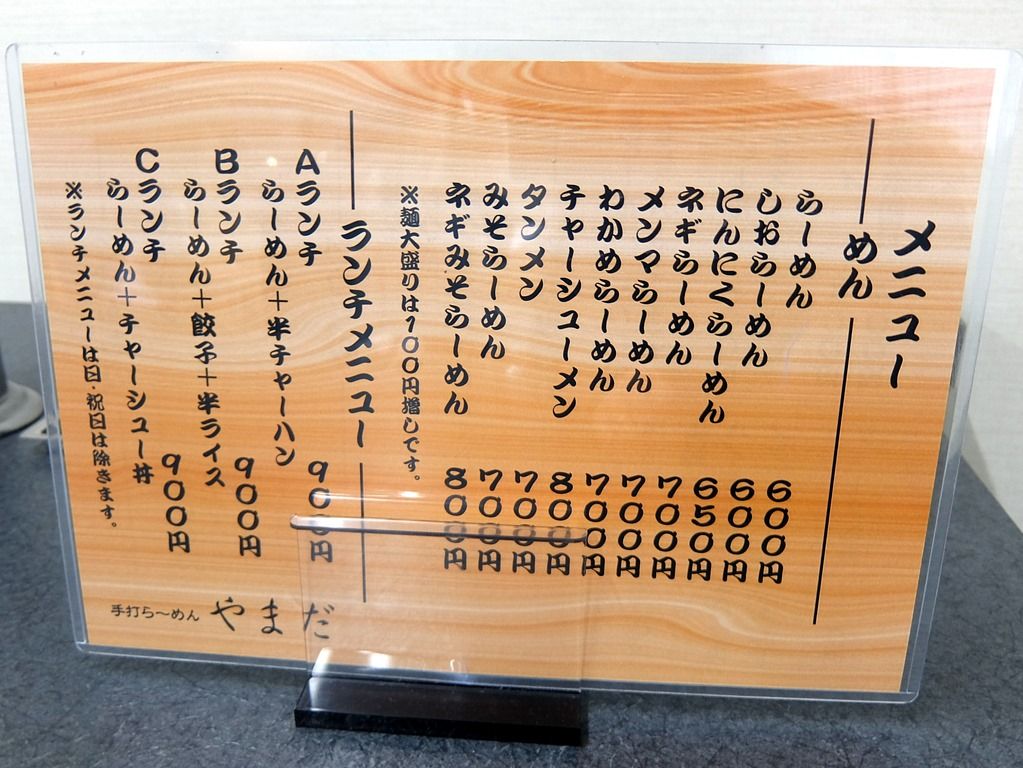 メニュー
めん
らーめん 600円
しおらーめん 600円
にんにくらーめん 650円
ネギらーめん 700円
メンマらーめん 700円
わかめらーめん 700円
チャーシューメン 800円
タンメン 700円
みそらーめん 700円
ネギみそらーめん 800円
※麺大盛りは100円増しです。
ランチメニュー
Aランチ
らーめん+半チャーハン 900円
Bランチ
らーめん+餃子+半ライス 900円
Cランチ
らーめん+チャーシュー丼 900円
※ランチメニューは日・祝日は除きます。
手打ら〜めん やまだ